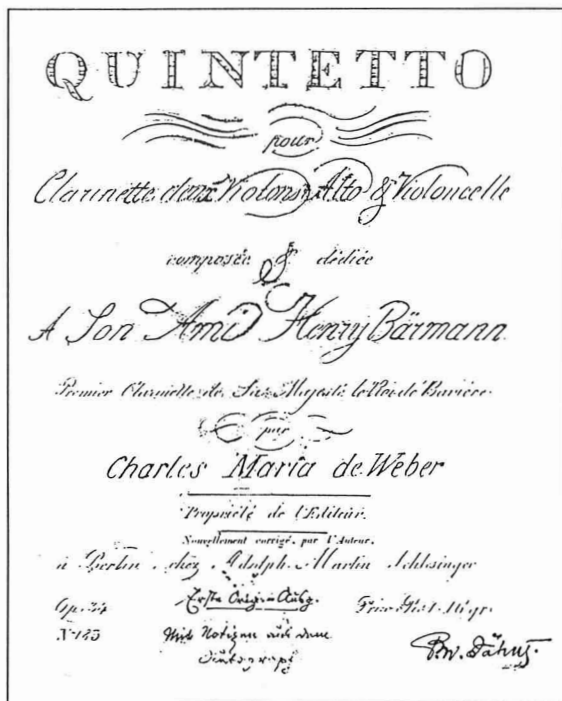 QUINTETTO
pour
Clarinette, deux Violons, Alto & Violoncelle
composée & dédiée
A Son Ami Henry Bärmann
Premier Clarinette de Sa Majesté le Roi de Bavière
par
Charles Maria de Weber
Propriété de l'Editeur.
Nouvellement corrigé, par l'Auteur.
à Berlin, chez Adolph Martin Schlesinger
Op. 34 Erste Origin Ausg.
Mit Notizen aus dem
Autograph